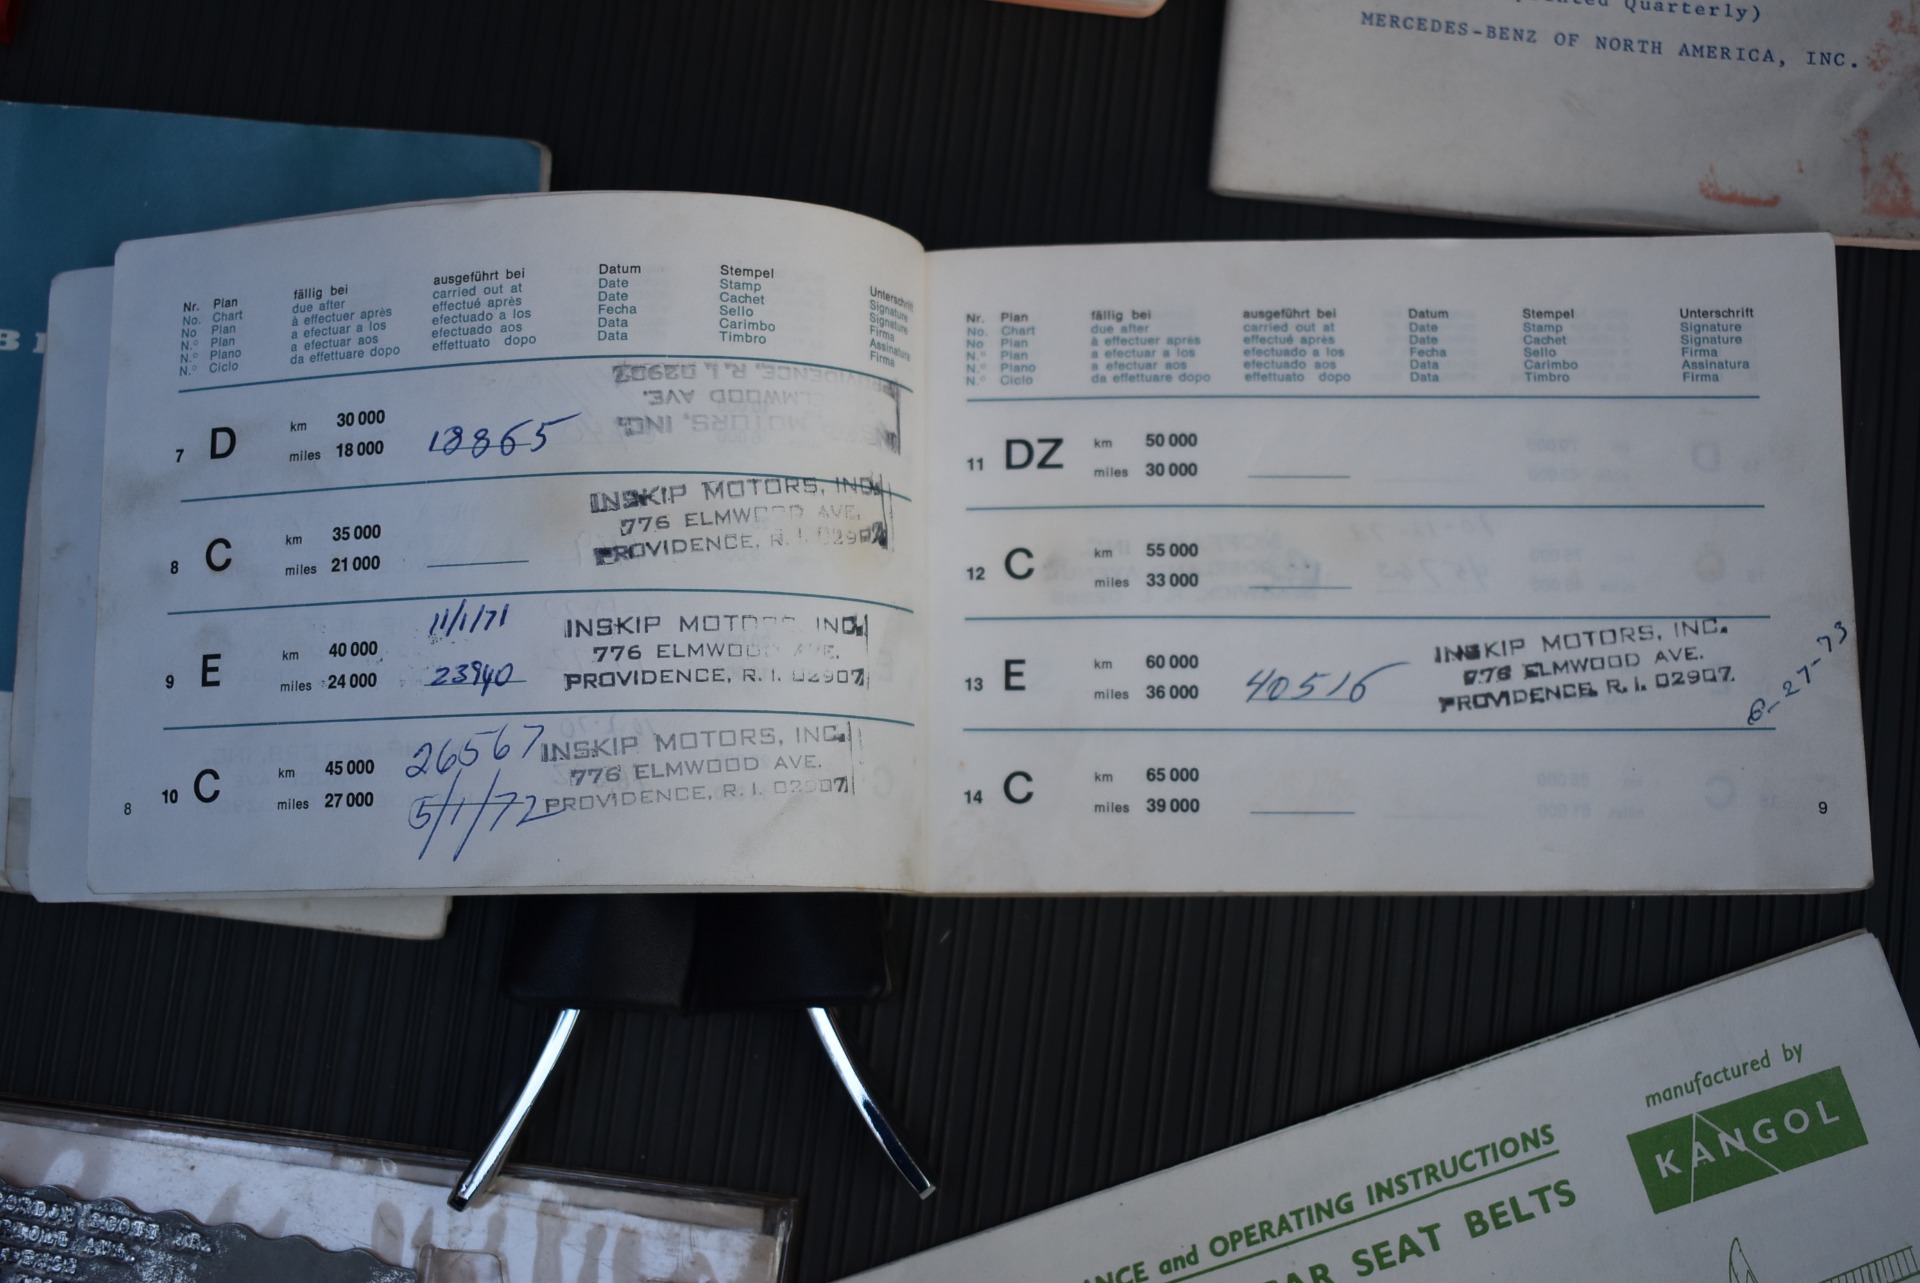 Quarterly)
MERCEDES-BENZ OF NORTH AMERICA, INC.
Nr. Plan fällig bei ausgeführt bei Datum Stempel Unterschrift
No. Chart due after carried out at Date Stamp Signature
No Plan à effectuer après effectué après Date Cachet Signature
N.° Plan a efectuar a los efectuado a los Fecha Sello Firma
N.° Plano a efectuar aos efectuado aos Data Carimbo Assinatura
N.° Ciclo da effettuare dopo effettuato dopo Data Timbro Firma
PROVIDENCE, R. I. 02907
ELMWOOD AVE.
MOTORS, INC.
7 D km 30 000
miles 18 000 18865
INSKIP MOTORS, INC.
776 ELMWOOD AVE.
PROVIDENCE, R. I. 02907
8 C km 35 000
miles 21 000
9 E km 40 000 11/1/71
miles 24 000 23940
INSKIP MOTORS, INC.
776 ELMWOOD AVE.
PROVIDENCE, R. I. 02907
10 C km 45 000 26567
miles 27 000 5/1/72
INSKIP MOTORS, INC.
776 ELMWOOD AVE.
PROVIDENCE, R. I. 02907
8
Nr. Plan fällig bei ausgeführt bei Datum Stempel Unterschrift
No. Chart due after carried out at Date Stamp Signature
No Plan à effectuer après effectué après Date Cachet Signature
N.° Plan a efectuar a los efectuado a los Fecha Sello Firma
N.° Plano a efectuar aos efectuado aos Data Carimbo Assinatura
N.° Ciclo da effettuare dopo effettuato dopo Data Timbro Firma
11 DZ km 50 000
miles 30 000
12 C km 55 000
miles 33 000
13 E km 60 000
miles 36 000 40516
INSKIP MOTORS, INC.
776 ELMWOOD AVE.
PROVIDENCE, R. I. 02907
6-27-73
14 C km 65 000
miles 39 000
9
manufactured by
KANGOL
and OPERATING INSTRUCTIONS
SEAT BELTS